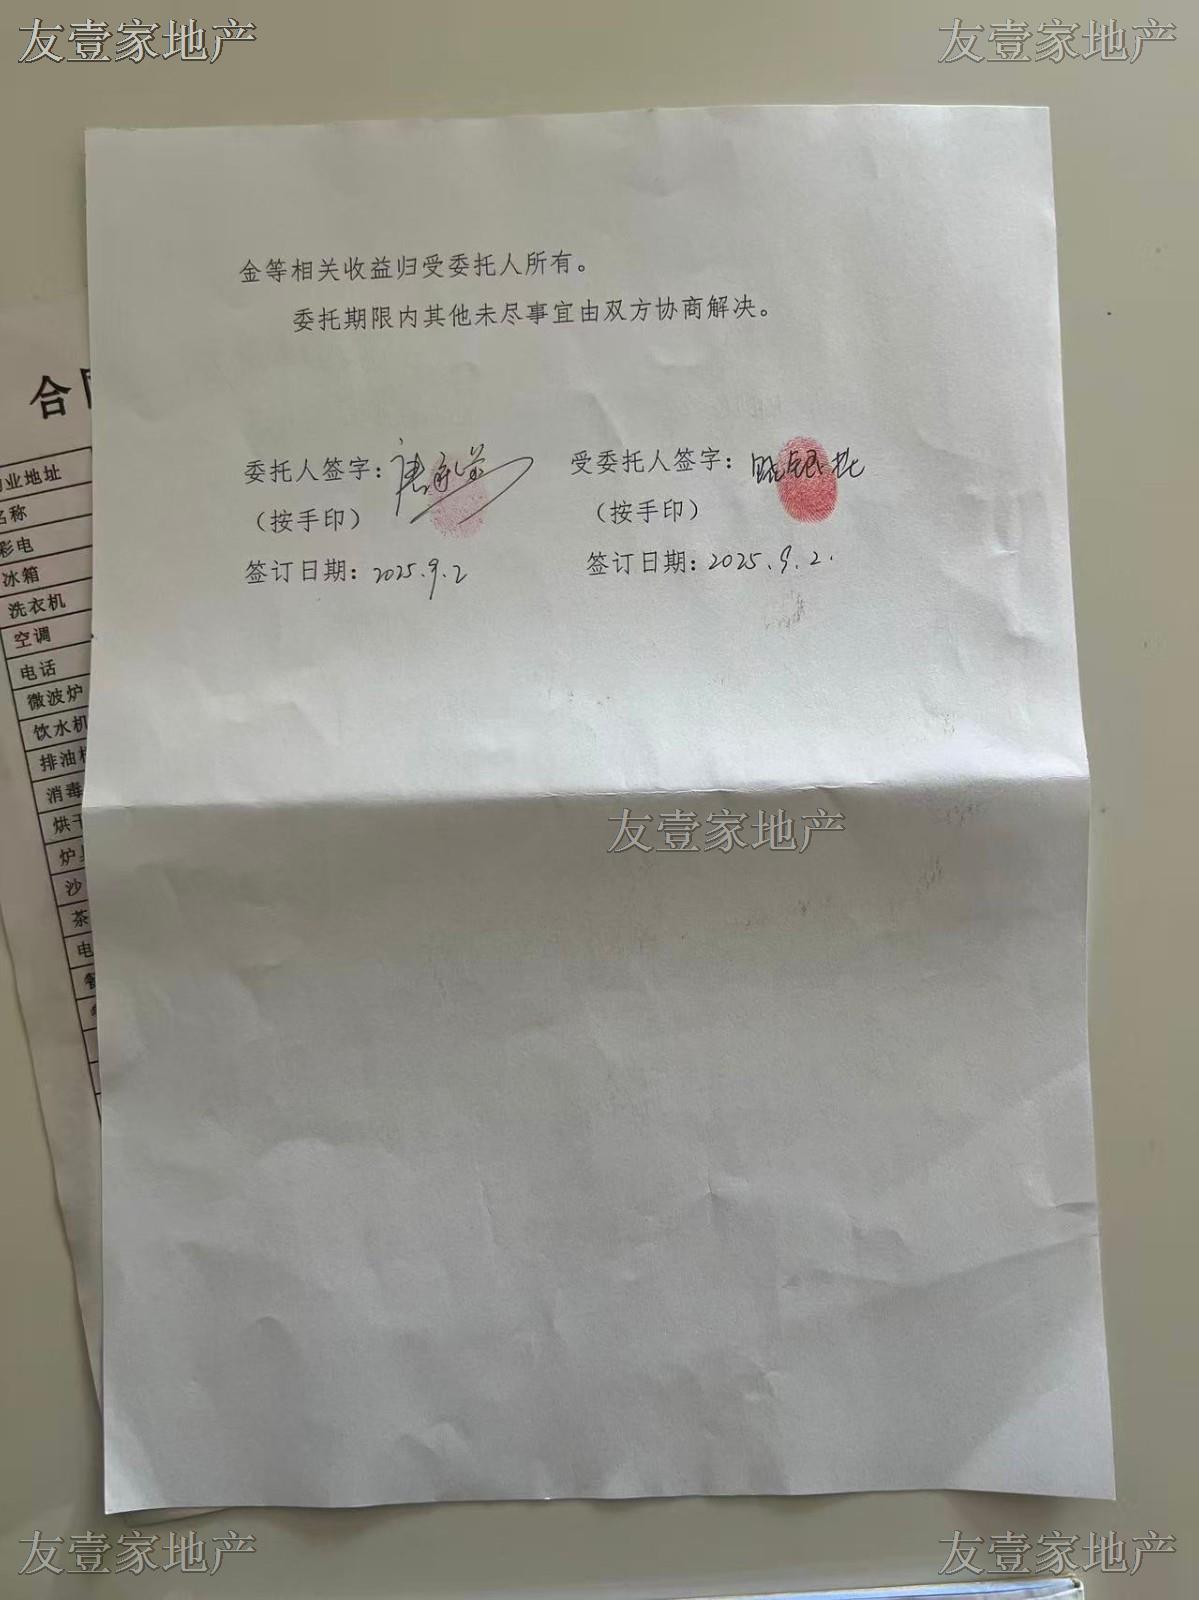 友壹家地产 友壹家地产
金等相关收益归受委托人所有。
委托期限内其他未尽事宜由双方协商解决。
委托人签字： 受委托人签字：
（按手印） （按手印）
签订日期：2025.9.2 签订日期：2025.9.2.
合
业地址
名称
彩电
冰箱
洗衣机
空调
电话
微波炉
饮水机
排油
消毒
烘干
炉
沙
茶
电
餐
友壹家地产
友壹家地产 友壹家地产